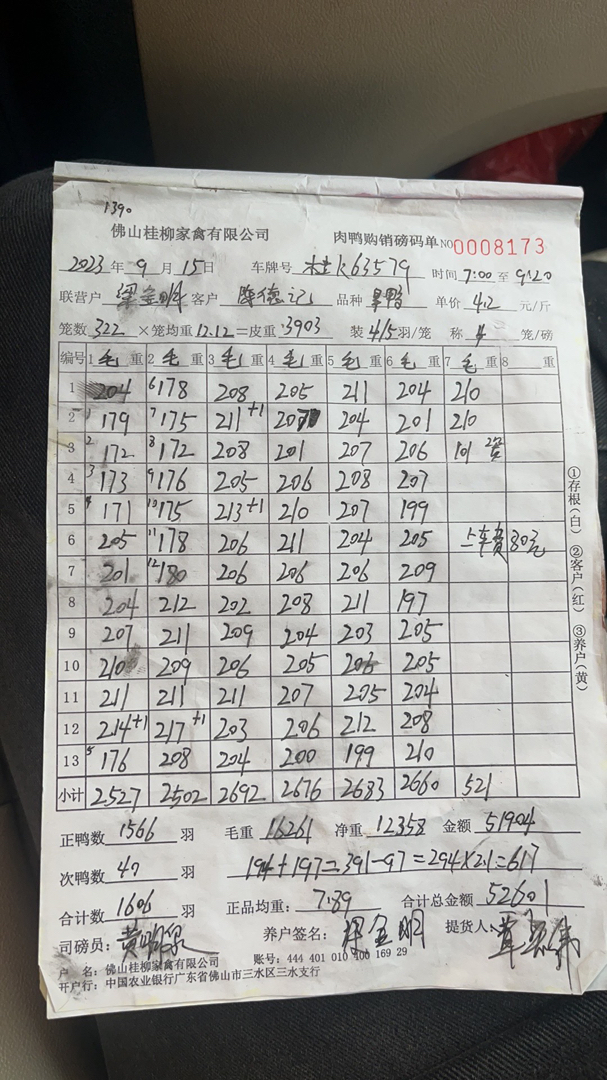 1390
佛山桂柳家禽有限公司 肉鸭购销磅码单 NO 0008173
2023年9月15日 车牌号 桂K63579 时间7:00至9:20
联营户 梁金明 客户 陈德记 品种 单价 4.2 元/斤
笼数 322 ×笼均重12.12=皮重·3903 装4/5羽/笼 称4笼/磅
编号 1毛重 2毛重 3毛重 4毛重 5毛重 6毛重 7毛重 8重
1 204 6 178 208 205 211 204 210
2 1 179 7 175 211+1 207 204 201 210
3 2 172 8 172 208 201 207 206 101
4 3 173 9 176 205 206 208 207
5 4 171 10 175 213+1 210 207 199
6 205 11 178 206 211 204 205 上车费80元
7 201 12 180 206 206 206 209
8 204 212 202 208 211 197
9 207 211 209 204 203 205
10 210 209 206 205 206 205
11 211 211 211 207 205 204
12 214+1 217+1 203 206 212 208
13 5 176 208 204 200 199 210
小计 2527 2502 2692 2676 2683 2660 521
①存根(白) ②客户(红) ③养户(黄)
正鸭数 1566 羽 毛重 16261 净重 12358 金额 51904
次鸭数 40 羽 194+197=391-97=294×2.1=617
合计数 1606 羽 正品均重: 7.89 合计总金额 52601
司磅员: 黄明泉 养户签名: 梁金明 提货人:
户 名: 佛山桂柳家禽有限公司 账号: 444 401 010 400 169 29
开户行: 中国农业银行广东省佛山市三水区三水支行